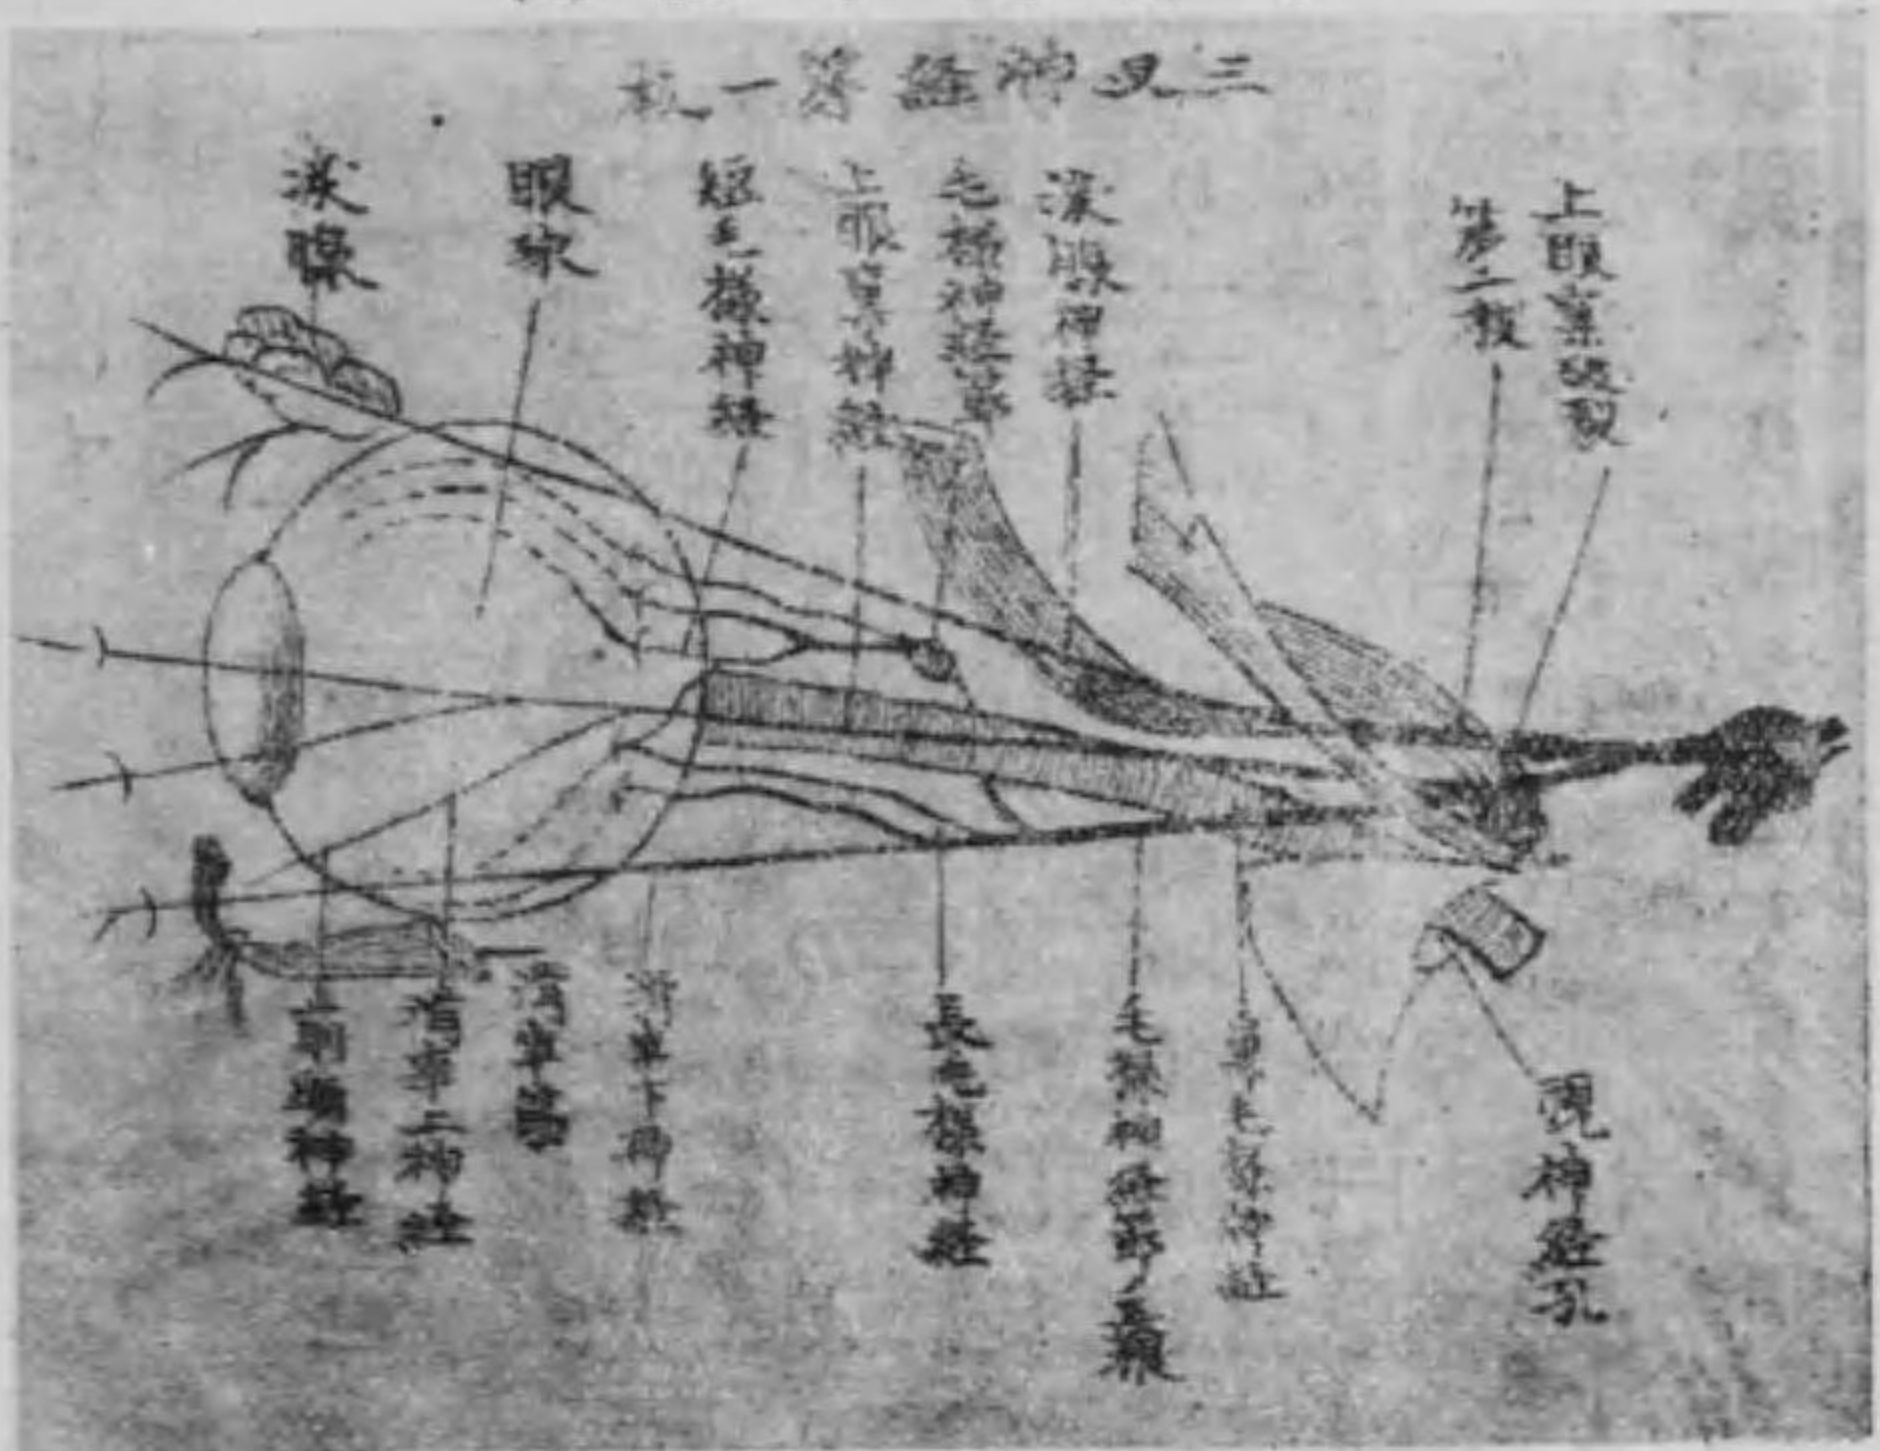 三叉神経第一枝
上眼窠破裂
第二枝
涙腺神経
毛様神経節
上眼窠神経
短毛様神経
眼球
涙腺
視神経孔
鼻毛様神経
毛様神経節ノ長根
長毛様神経
滑車下神経
滑車上神経